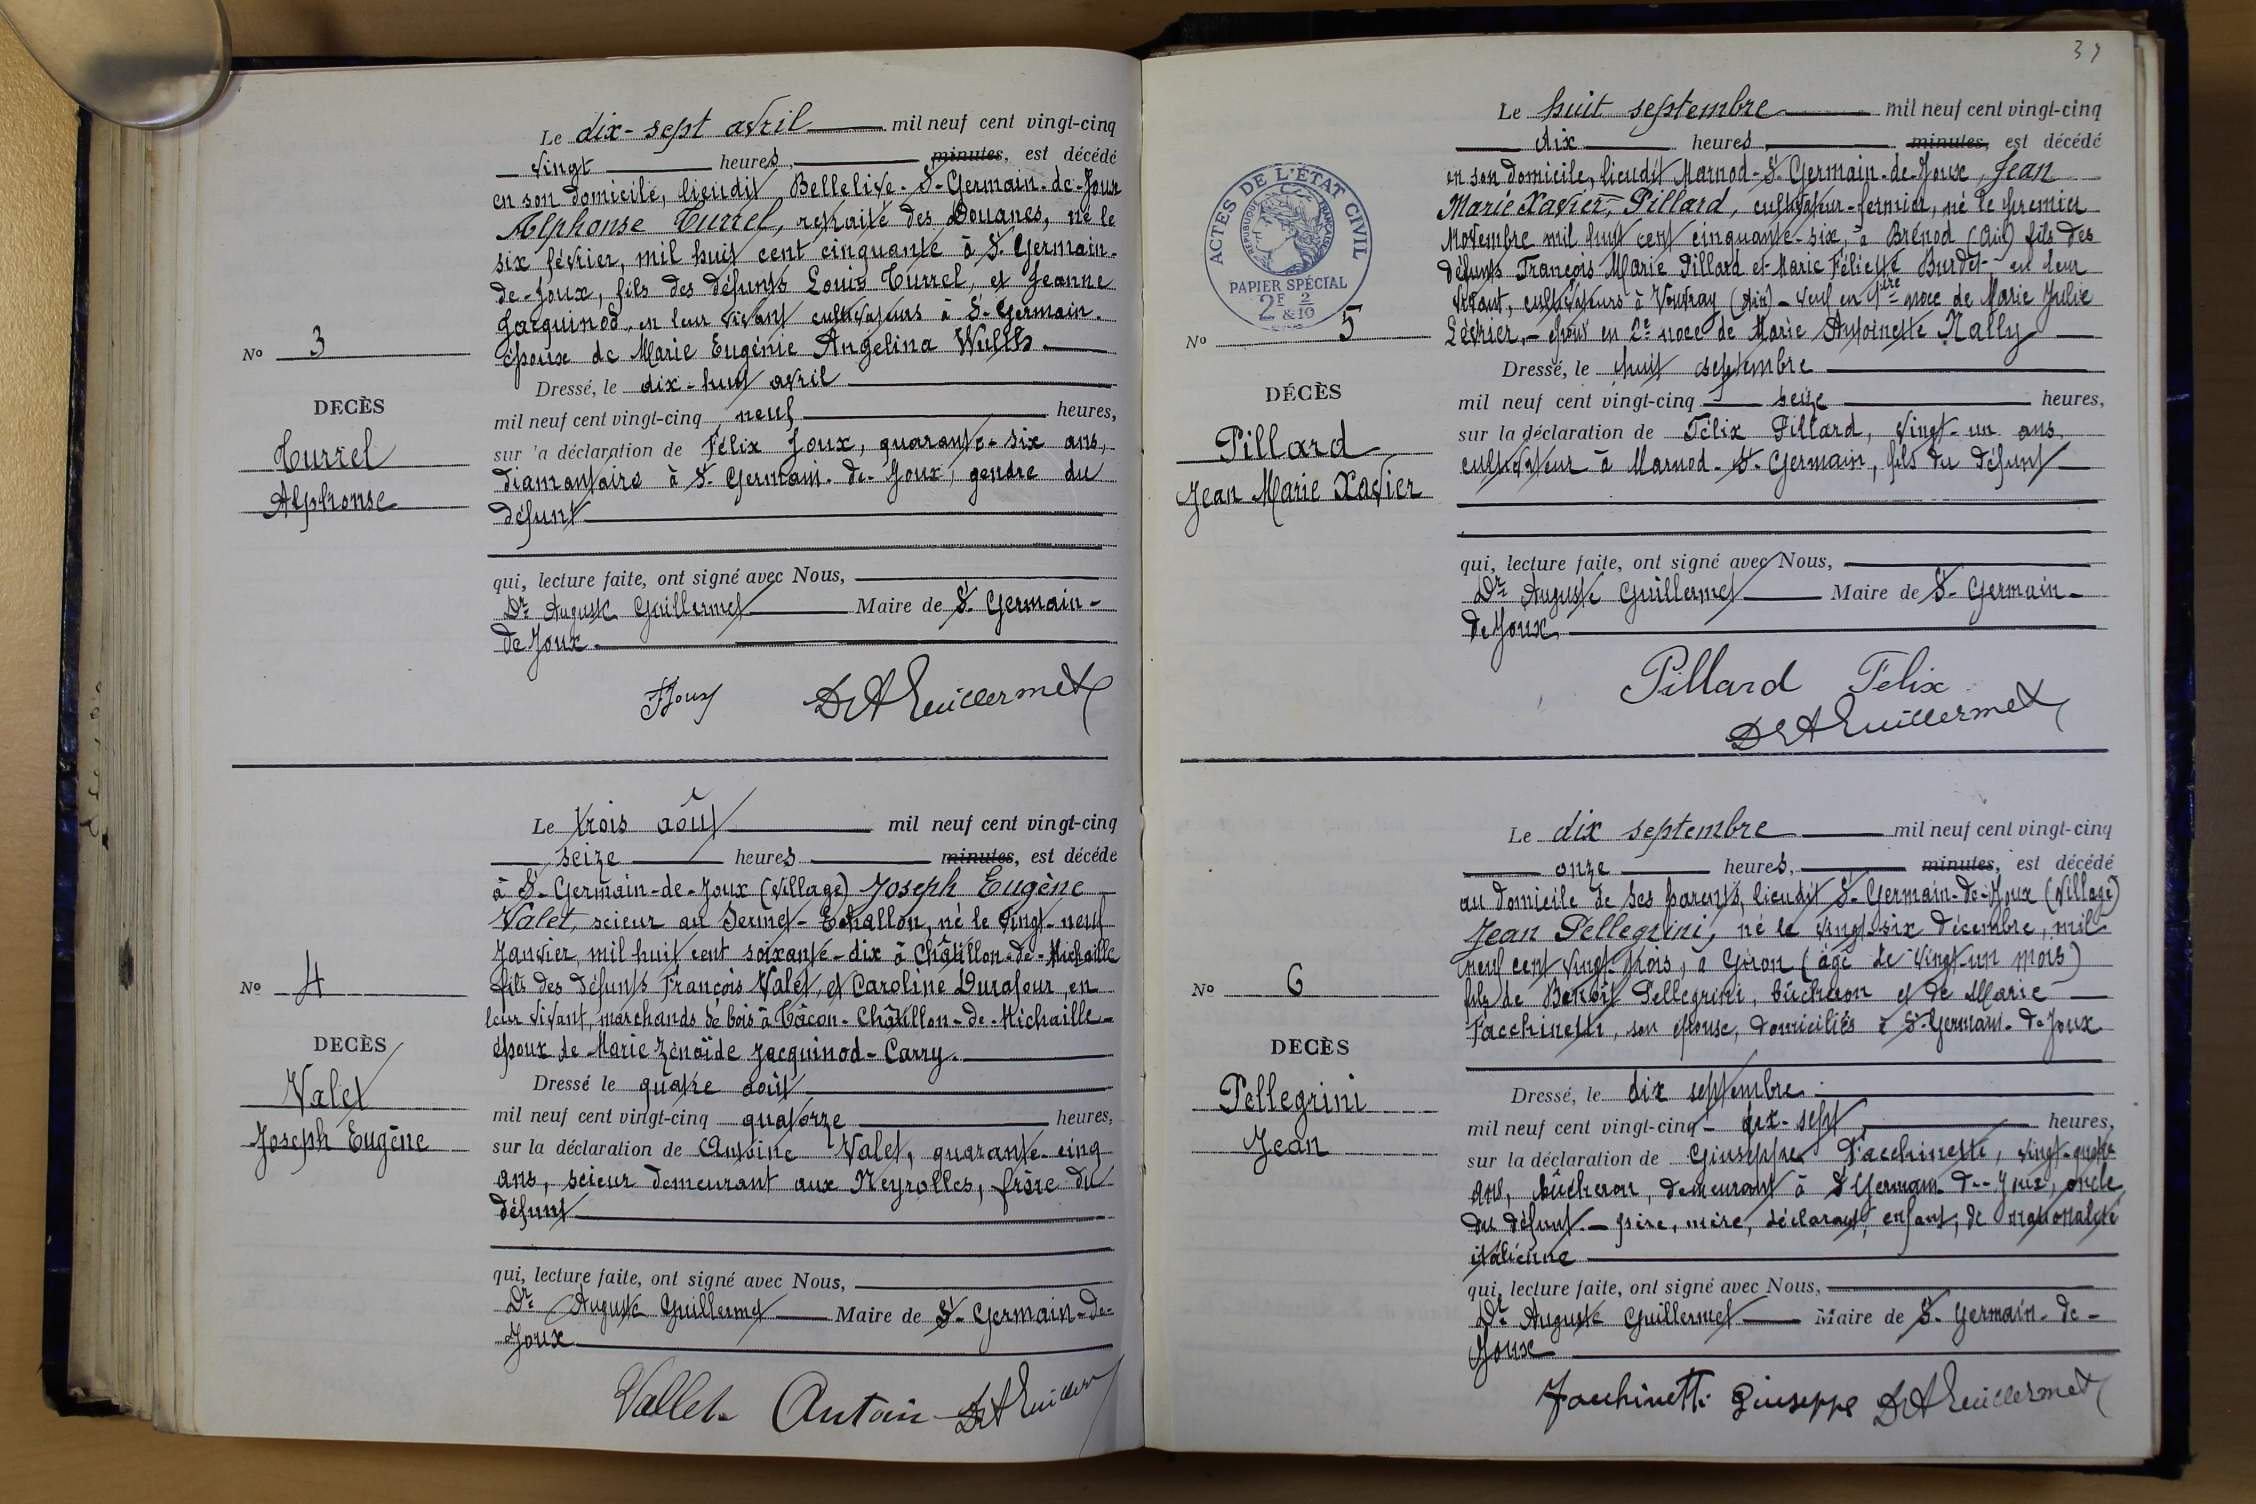 Le dix-sept avril mil neuf cent vingt-cinq
vingt heures, minutes, est décédé
en son domicile, lieudit Bellelive. St-Germain-de-Joux
Alphonse Turrel, retraité des Douanes, né le
six février, mil huit cent cinquante à St. Germain-
de-Joux, fils des défunts Louis Turrel, et Jeanne
Jacquinod, en leur vivant cultivateurs à St-Germain.
époux de Marie Eugénie Angelina
No 3
DECÈS
Turrel
Alphonse
Dressé, le dix-huit avril
mil neuf cent vingt-cinq neuf heures,
sur 'a déclaration de Félix Joux, quarante-six ans,
diamantaire à St-Germain-de-Joux, gendre du
défunt
qui, lecture faite, ont signé avec Nous,
Dr. Auguste Guillermet Maire de St-Germain-
de Joux.
FJoux DrAGuillermet
Le trois août mil neuf cent vingt-cinq
seize heures minutes, est décédé
à St-Germain-de-Joux (village) Joseph Eugène
Valet, scieur au Sermet-Echallon, né le vingt-neuf
Janvier, mil huit cent soixante-dix à Châtillon-de-Michaille
fils des défunts François Valet, et Caroline Durafour, en
leur vivant, marchands de bois à Tâcon-Châtillon-de-Michaille-
époux de Marie Zénaïde Jacquinod-Carry.
No 4
DECÈS
Valet
Joseph Eugène
Dressé le quatre août
mil neuf cent vingt-cinq quatorze heures,
sur la déclaration de Antoine Valet, quarante-cinq
ans, scieur demeurant aux Neyrolles, frère du
défunt
qui, lecture faite, ont signé avec Nous,
Dr. Auguste Guillermet Maire de St-Germain-de-
Joux
Vallet Antoin DrAGuiller
39
Le huit septembre mil neuf cent vingt-cinq
dix heures minutes, est décédé
en son domicile, lieudit Marnod-St Germain-de-Joux, Jean
Marie Xavier, Pillard, cultivateur-fermier, né le premier
Novembre mil huit cent cinquante-six, à Brénod (Ain) fils des
défunts François Marie Pillard et Marie Féliette Burdet, en leur
vivant, cultivateurs à Vouvray (Ain) - veuf en 1ère noce de Marie Julie
Lévrier,- époux en 2e noce de Marie Antoinette Nally
ACTES DE L'ÉTAT CIVIL
REPUBLIQUE FRANÇAISE
PAPIER SPÉCIAL
2F & 2/10
No 5
DÉCÈS
Pillard
Jean Marie Xavier
Dressé, le huit septembre
mil neuf cent vingt-cinq seize heures,
sur la déclaration de Félix Pillard, vingt-un ans
cultivateur à Marnod-St-Germain, fils du défunt
qui, lecture faite, ont signé avec Nous,
Dr. Auguste Guillermet Maire de St-Germain-
de Joux
Pillard Felix
DrAGuillermet
Le dix septembre mil neuf cent vingt-cinq
onze heures, minutes, est décédé
au domicile de ses parents, lieudit St-Germain-de-Joux (Village)
Jean Pellegrini, né le vingt-six décembre, mil
neuf cent vingt-trois, à Giron (âgé de vingt-un mois)
fils de Benoît Pellegrini, bûcheron et de Marie
Facchinetti, son épouse, domiciliés à St-Germain-de Joux
No 6
DECÈS
Pellegrini
Jean
Dressé, le dix septembre
mil neuf cent vingt-cinq - dix-sept heures,
sur la déclaration de Giuseppe Facchinetti, vingt-quatre
ans, bûcheron, demeurant à St Germain-de-Joux, oncle
du défunt.- père, mère, déclarant, enfant, de nationalité
italienne
qui, lecture faite, ont signé avec Nous,
Dr. Auguste Guillermet Maire de St-Germain-de-
Joux
Facchinetti Giuseppe DrAGuillermet